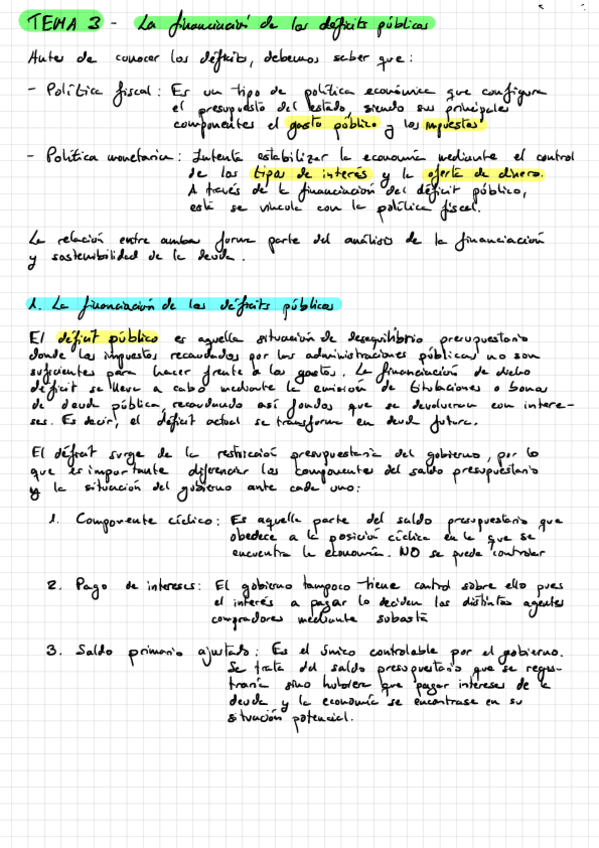 TEMA 3 - La financiación de los déficits públicos
Antes de conocer los déficits, debemos saber que:
- Política fiscal: Es un tipo de política económica que configura
el presupuesto del estado, siendo sus principales
componentes el gasto público y los impuestos
- Política monetaria: Intenta estabilizar la economía mediante el control
de los tipos de interés y la oferta de dinero.
A través de la financiación del déficit público,
está se vincula con la política fiscal.
La relación entre ambas forma parte del análisis de la financiación
y sostenibilidad de la deuda.
1. La financiación de los déficits públicos
El déficit público es aquella situación de desequilibrio presupuestario
donde los impuestos recaudados por las administraciones públicas no son
suficientes para hacer frente a los gastos. La financiación de dicho
déficit se lleva a cabo mediante la emisión de titulaciones o bonos
de deuda pública, recaudando así fondos que se devolveran con intere-
ses. Es decir, el déficit actual se transforma en deuda futura.
El déficit surge de la restricción presupuestaria del gobierno, por lo
que es importante diferenciar los componentes del saldo presupuestario
y la situación del gobierno ante cada uno:
1. Componente cíclico: Es aquella parte del saldo presupuestario que
obedece a la posición cíclica en la que se
encuentra la economía. NO se puede controlar
2. Pago de intereses: El gobierno tampoco tiene control sobre ello pues
el interés a pagar lo deciden los distintos agentes
compradores mediante subasta
3. Saldo primario ajustado: Es el único controlable por el gobierno.
Se trata del saldo presupuestario que se regis-
traría sino hubiera que pagar intereses de la
deuda y la economía se encontrase en su
situación potencial.